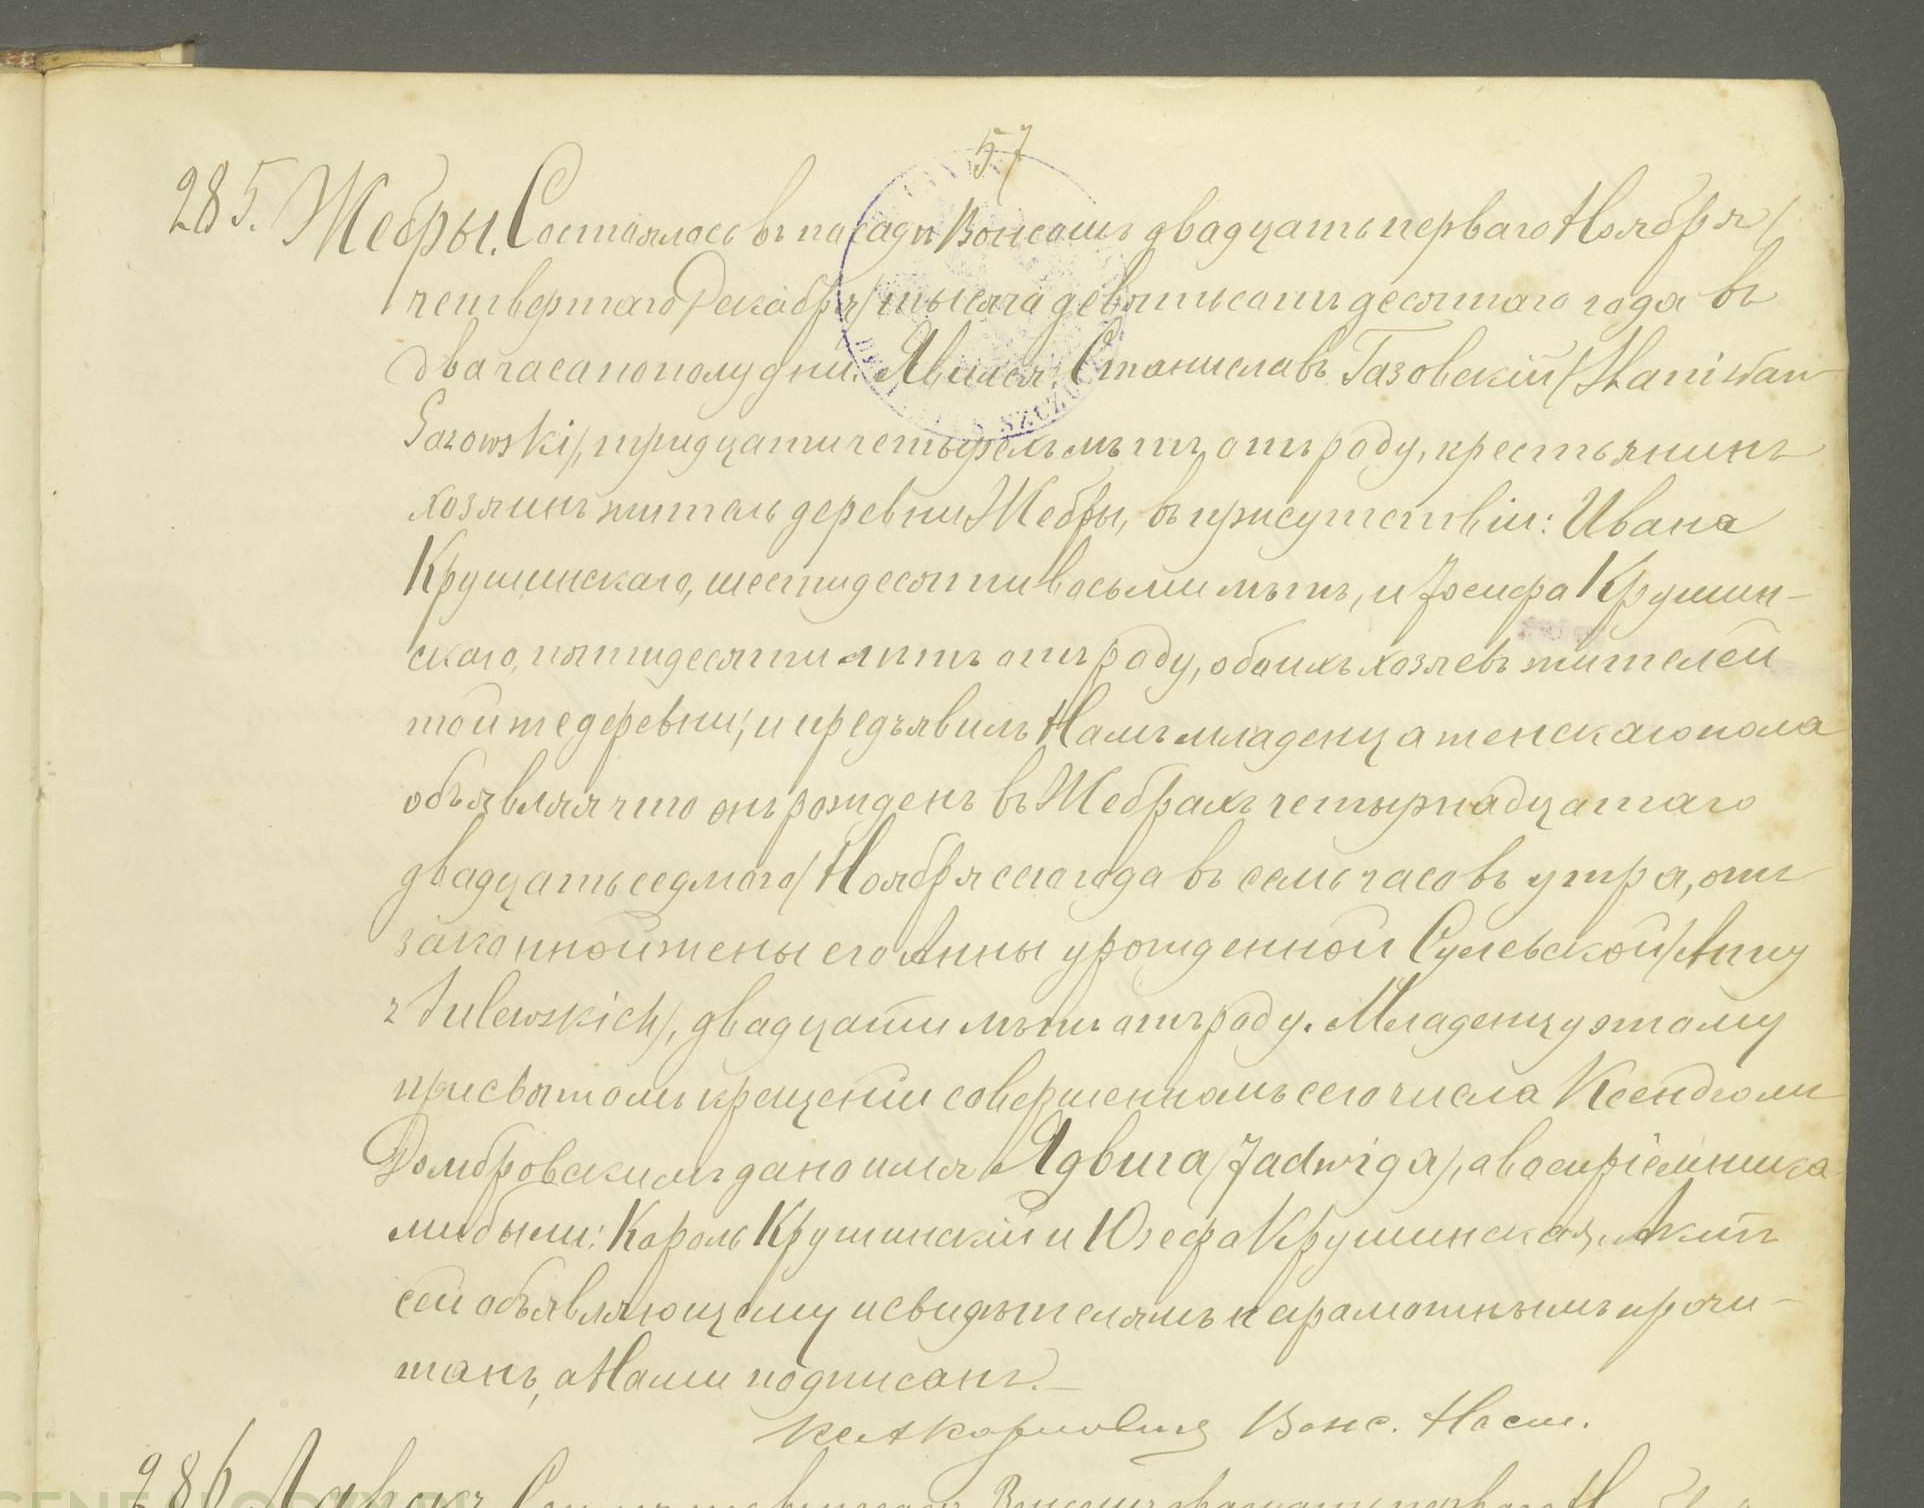 57
285. Жебры. Состоялось въ посадѣ Вонсошъ двадцать перваго Ноября/
четвертаго Декабря/ тысяча девятьсотъ десятаго года въ
два часа пополудни. Явился: Станиславъ Газовскій /Stanisław
Gazowski/, тридцати четырехъ лѣтъ отъ роду, крестьянинъ
хозяинъ житель деревни Жебры, въ присутствіи: Ивана
Крушинскаго, шестидесяти восьми лѣтъ, и Іосифа Крушин-
скаго, пятидесяти лѣтъ отъ роду, обоихъ хозяевъ жителей
той же деревни; и предъявилъ Намъ младенца женскаго пола
объявляя что онъ рожденъ въ Жебрахъ четырнадцатаго
двадцать седмого/ Ноября сего года въ семь часовъ утра, отъ
законной жены его Анны урожденной Сулевской /Anny
z Sulewskich/, двадцати лѣтъ отъ роду. Младенцу этому
при святомъ крещеніи совершенномъ сего числа Ксендзомъ
Домбровскимъ дано имя Ядвига /Jadwiga/, а воспріемника-
ми были: Кароль Крушинскій и Юзефа Крушинская. Актъ
сей объявляющему и свидѣтелямъ неграмотнымъ прочи-
танъ, а Нами подписанъ.-
Вонс. Наст.
286 Лавскъ